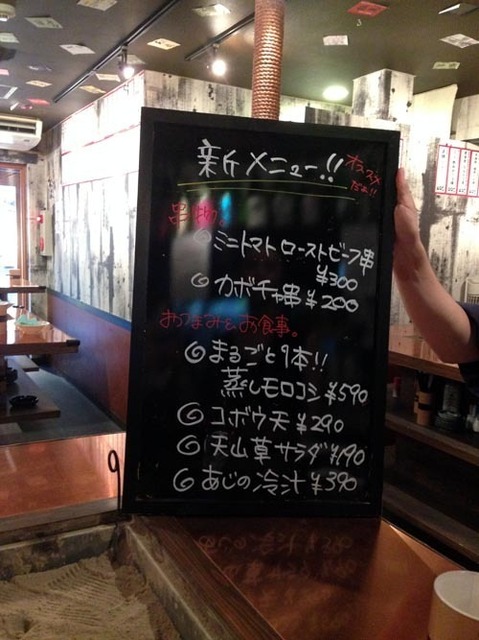 新メニュー!!
オススメ
だよ!!
串物
ミニトマトローストビーフ串
¥300
カボチャ串 ¥200
おつまみ&お食事。
まるごと1本!!
蒸しモロコシ ¥590
コボウ天 ¥290
天山草サラダ ¥190
あじの冷汁 ¥390